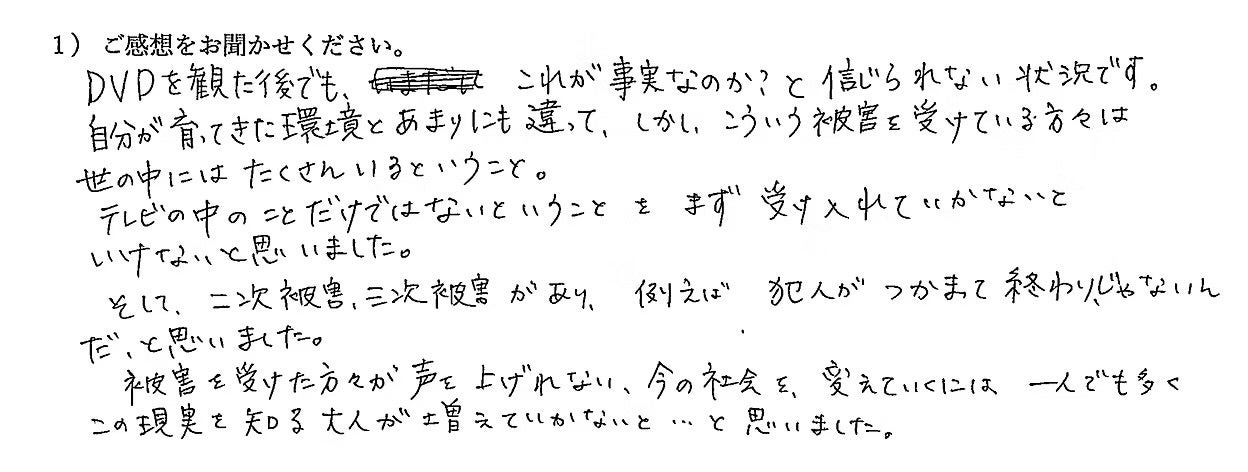 1) ご感想をお聞かせください。
DVDを観た後でも、これが事実なのか?と信じられない状況です。
自分が育ってきた環境とあまりにも違って、しかし、こういう被害を受けている方々は
世の中にはたくさんいるということ。
テレビの中のことだけではないということをまず受け入れていかないと
いけないと思いました。
そして、二次被害、三次被害があり、例えば犯人がつかまって終わりじゃないん
だ、と思いました。
被害を受けた方々が声を上げれない、今の社会を、変えていくには一人でも多く
この現実を知る大人が増えていかないと…と思いました。